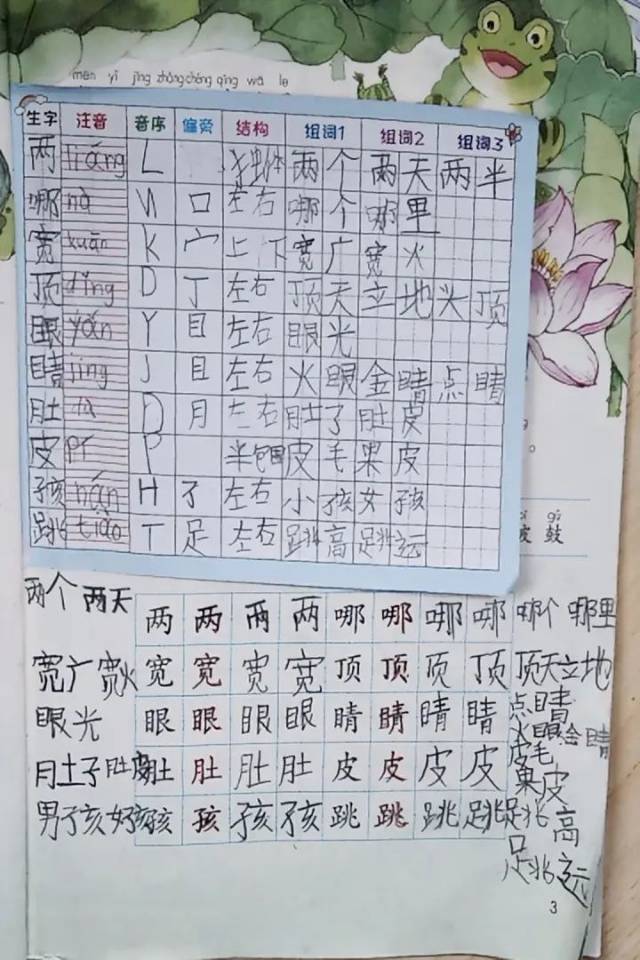 men yǐ jīng zhǎng chéng qīng wā le
生字 注音 音序 偏旁 结构 组词1 组词2 组词3
两 liǎng L 两个 两天 两半
哪 nǎ N 口 左右 哪个 哪里
宽 kuān K 宀 上下 宽广 宽火
顶 dǐng D 丁 左右 顶天立地 头顶
眼 yǎn Y 目 左右 眼光
睛 jīng J 目 左右 火眼金睛 点睛
肚 dù D 月 左右 肚子 肚皮
皮 pí P 半包围 皮毛 果皮
孩 hái H 子 左右 小孩 女孩
跳 tiào T 足 左右 跳高 跳远
皮 鼓
两个 两天 两 两 两 两 哪 哪 哪 哪 哪个 哪里
宽广 宽火 宽 宽 宽 宽 顶 顶 顶 顶 顶天立地
眼光 眼 眼 眼 眼 睛 睛 睛 睛 点睛
火眼金睛
肚子 肚皮 肚 肚 肚 肚 皮 皮 皮 皮 皮毛
果皮
男孩 好孩 孩 孩 孩 孩 跳 跳 跳 跳 跳高
跳远
3